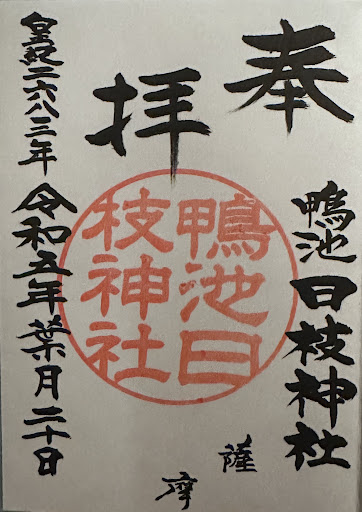 奉
拝
鴨池日枝神社
鴨池日
枝神社
薩
摩
皇紀二六八三年 令和五年葉月二十日